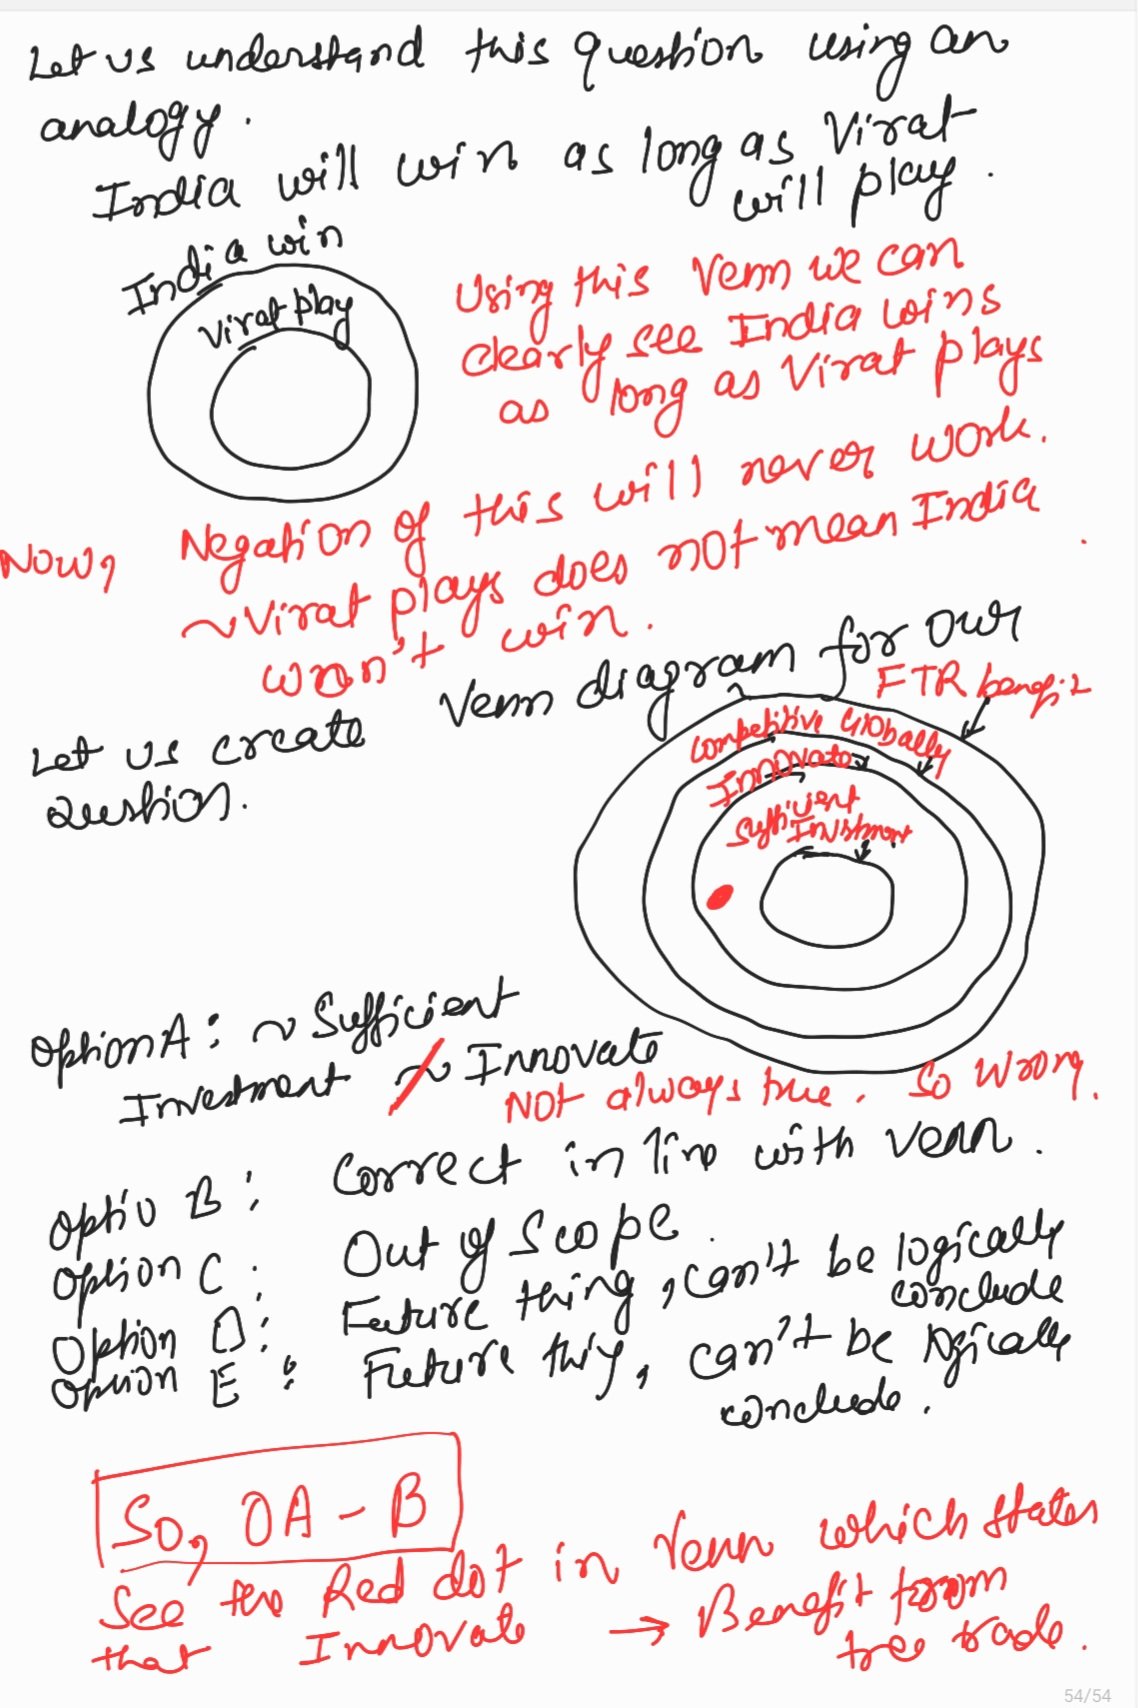 Let us understand this question using an
analogy.
India will win as long as Virat
will play.
India win
Virat play
Using this Venn we can
clearly see India wins
as long as Virat plays
Now, Negation of this will never work.
~Virat plays does not mean India
won't win.
Let us create Venn diagram for our
Question.
FTR benefit
Competitive Globally
Innovate
Sufficient
Investment
Option A: ~ Sufficient
Investment ~ Innovate
NOt always true. So Wrong.
Optio B: Correct in line with venn.
Option C: Out of Scope.
Option D: Future thing, can't be logically
conclude
Option E: Future thig, can't be logically
conclude.
So, OA - B
See the Red dot in Venn which states
that Innovate → Benefit from
free trade.
54/54